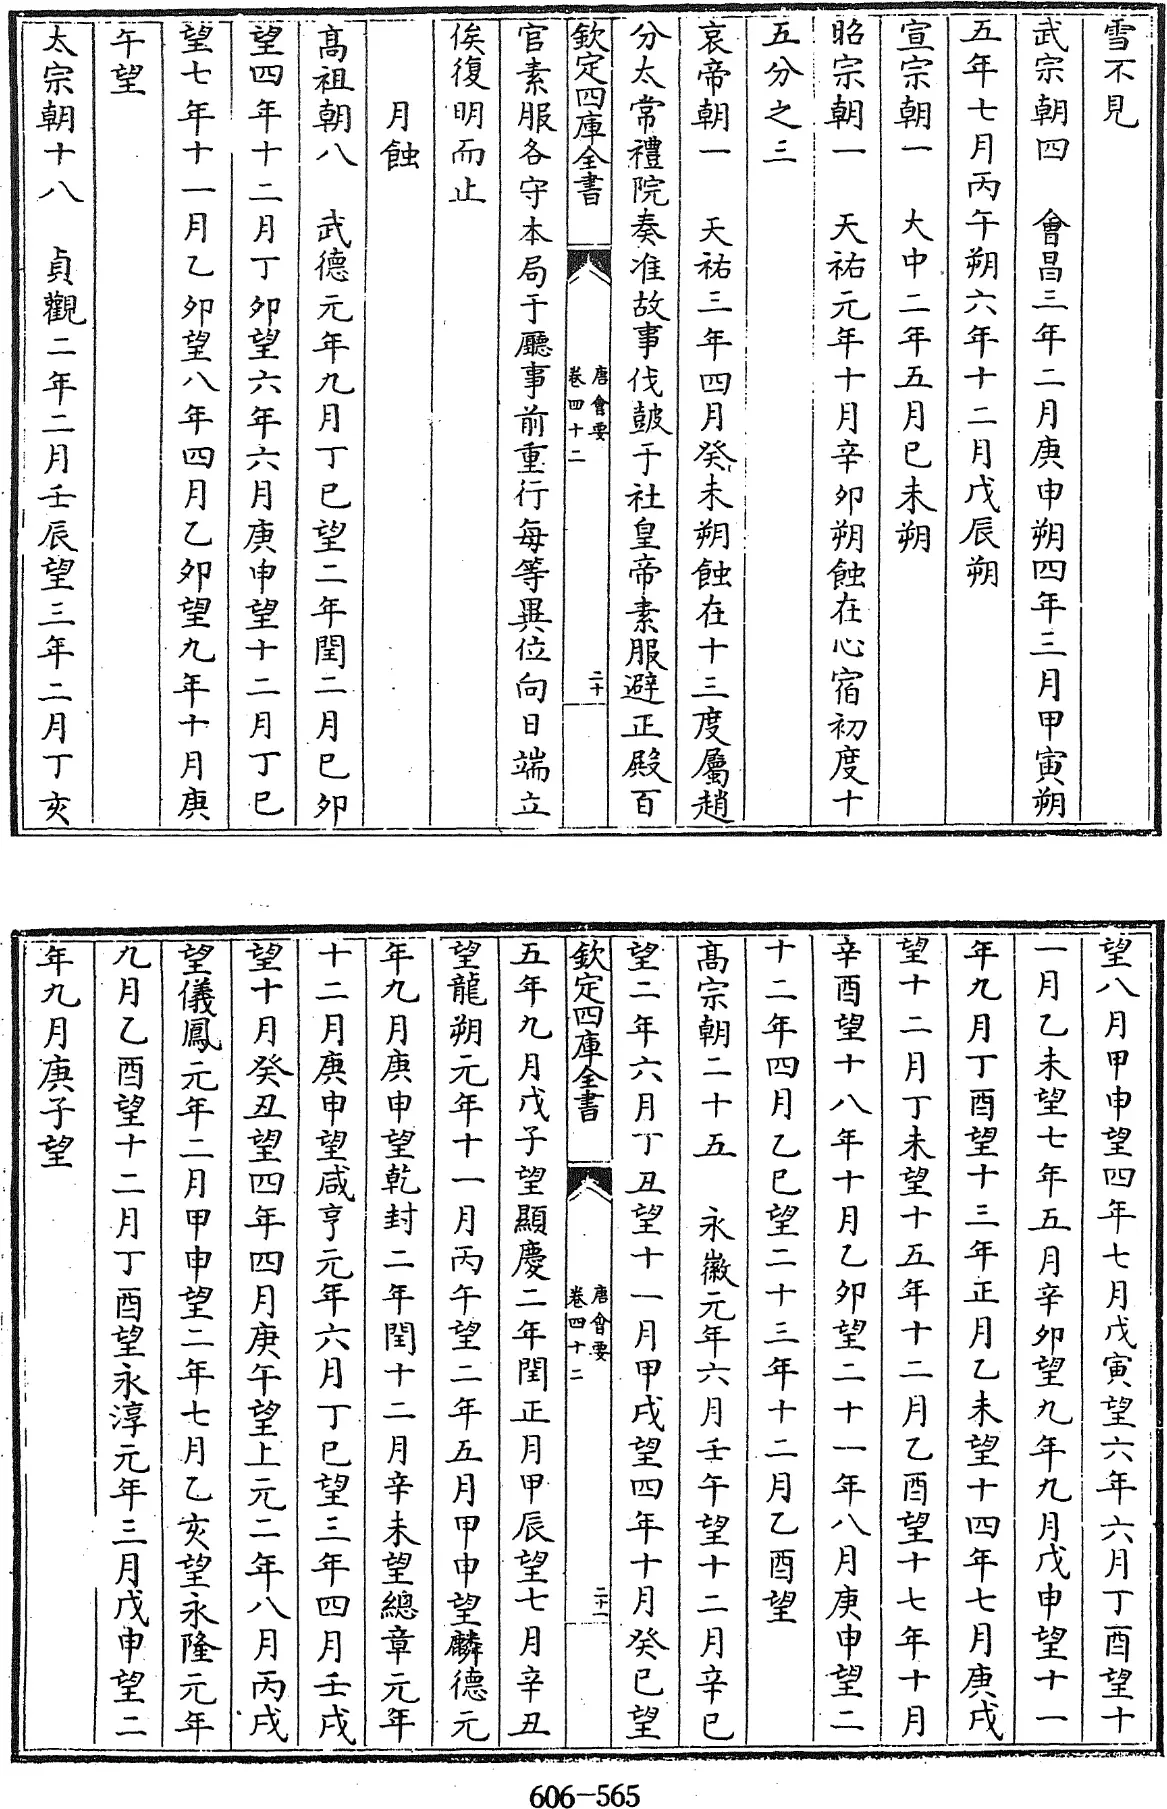 雪不見
武宗朝四　會昌三年二月庚申朔四年三月甲寅朔
五年七月丙午朔六年十二月戊辰朔
宣宗朝一　大中二年五月已未朔
昭宗朝一　天祐元年十月辛卯朔蝕在心宿初度十
五分之三
哀帝朝一　天祐三年四月癸未朔蝕在十三度屬趙
分太常禮院奏准故事伐鼓于社皇帝素服避正殿百
欽定四庫全書　唐會要卷四十二　二十
官素服各守本局于廳事前重行每等異位向日端立
俟復明而止
月蝕
髙祖朝八　武德元年九月丁已望二年閏二月已卯
望四年十二月丁卯望六年六月庚申望十二月丁已
望七年十一月乙卯望八年四月乙卯望九年十月庚
午望
太宗朝十八　貞觀二年二月壬辰望三年二月丁亥
望八月甲申望四年七月戊寅望六年六月丁酉望十
一月乙未望七年五月辛卯望九年九月戊申望十一
年九月丁酉望十三年正月乙未望十四年七月庚戌
望十二月丁未望十五年十二月乙酉望十七年十月
辛酉望十八年十月乙卯望二十一年八月庚申望二
十二年四月乙已望二十三年十二月乙酉望
髙宗朝二十五　永徽元年六月壬午望十二月辛已
望二年六月丁丑望十一月甲戌望四年十月癸已望
欽定四庫全書　唐會要卷四十二　二十一
五年九月戊子望顯慶二年閏正月甲辰望七月辛丑
望龍朔元年十一月丙午望二年五月甲申望麟德元
年九月庚申望乾封二年閏十二月辛未望總章元年
十二月庚申望咸亨元年六月丁已望三年四月壬戌
望十月癸丑望四年四月庚午望上元二年八月丙戌
望儀鳳元年二月甲申望二年七月乙亥望永隆元年
九月乙酉望十二月丁酉望永淳元年三月戊申望二
年九月庚子望
606-565